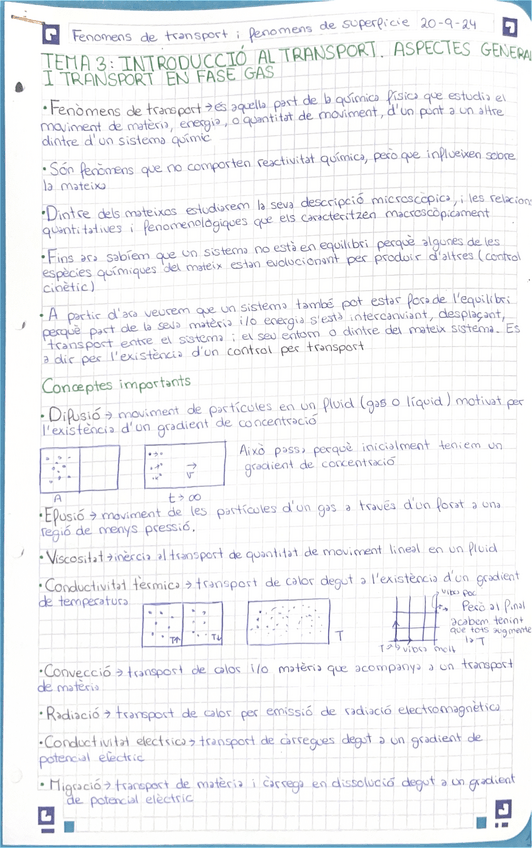 Fenomens de transport i fenomens de superfície 20-9-24
TEMA 3: INTRODUCCIÓ AL TRANSPORT. ASPECTES GENERAL
I TRANSPORT EN FASE GAS
· Fenòmens de transport → és aquella part de la química física que estudia el
moviment de matèria, energia, o quantitat de moviment, d'un punt a un altre
dintre d'un sistema químic
· Són fenòmens que no comporten reactivitat química, però que influeixen sobre
la mateixa
· Dintre dels mateixos estudiarem la seva descripció microscòpica, i les relacions
quantitatives i fenomenològiques que els caracteritzen macroscòpicament
· Fins ara sabíem que un sistema no està en equilibri perquè algunes de les
espècies químiques del mateix estan evolucionant per produir d'altres (control
cinètic)
· A partir d'ara veurem que un sistema també pot estar fora de l'equilibri
perquè part de la seva matèria i/o energia s'està intercanviant, desplaçant,
transport entre el sistema i el seu entorn o dintre del mateix sistema. Es
a dir per l'existència d'un control per transport
Conceptes importants
· Difusió → moviment de partícules en un fluid (gas o líquid) motivat per
l'existència d'un gradient de concentració
Això passa perquè inicialment teniem un
gradient de concentració
A t→∞
· Efusió → moviment de les partícules d'un gas a través d'un forat a una
regió de menys pressió.
· Viscositat → inèrcia al transport de quantitat de moviment lineal en un fluid
· Conductivitat tèrmica → transport de calor degut a l'existència d'un gradient
de temperatura
T↑ T↓ T
vibra poc
Però al final
acaben tenint
que tots augmenten
la T
vibra molt
· Convecció → transport de calor i/o matèria que acompanya a un transport
de matèria
· Radiació → transport de calor per emissió de radiació electromagnètica
· Conductivitat elèctrica → transport de càrregues degut a un gradient de
potencial elèctric
· Migració → transport de matèria i càrrega en dissolució degut a un gradient
de potencial elèctric